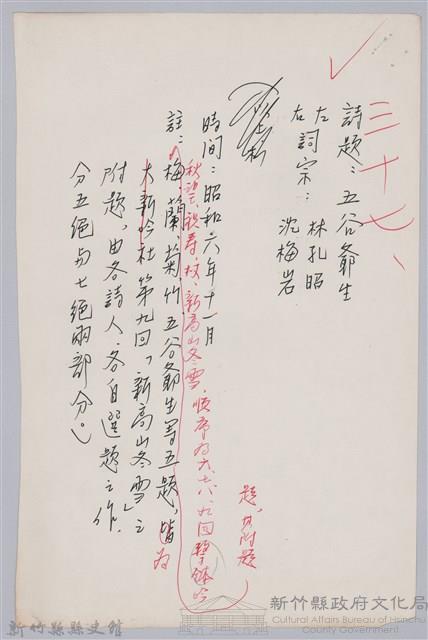 三十七、
詩題：五谷爺生
左詞宗：林孔昭
右　　　沈梅岩
時間：昭和六年十一月
秋望、祝壽、新高山冬雪，順序為六、七、八、九回擊鉢吟
題，其附題
註：梅、蘭、菊、竹、五谷爺生等五題，皆為
大新吟社第九回「新高山冬雪」之
附題，由各詩人、各自選題之作，
分五絕与七絕兩部分。
新竹縣縣史館
新竹縣政府文化局
Cultural Affairs Bureau of Hsinchu
County Government